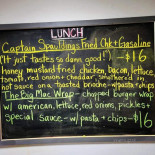 LUNCH
Captain Spauldings Fried Chk + Gasoline
("It just tastes so damn good!") -$16
honey mustard fried chicken, bacon, lettuce,
tomato, red onion + cheddar, smothered in
hot sauce on a toasted brioche w/pasta + chips
The Big Mac Wrap - chopped burger wrap
w/ american, lettuce, red onion, pickles +
Special Sauce - w/pasta + chips -$16